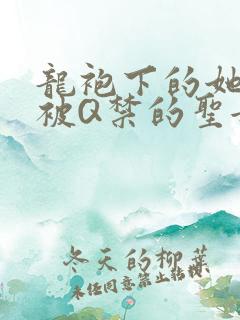 龍袍下的她
被Q禁的聖
冬天的柳葉
未经同意禁止转载